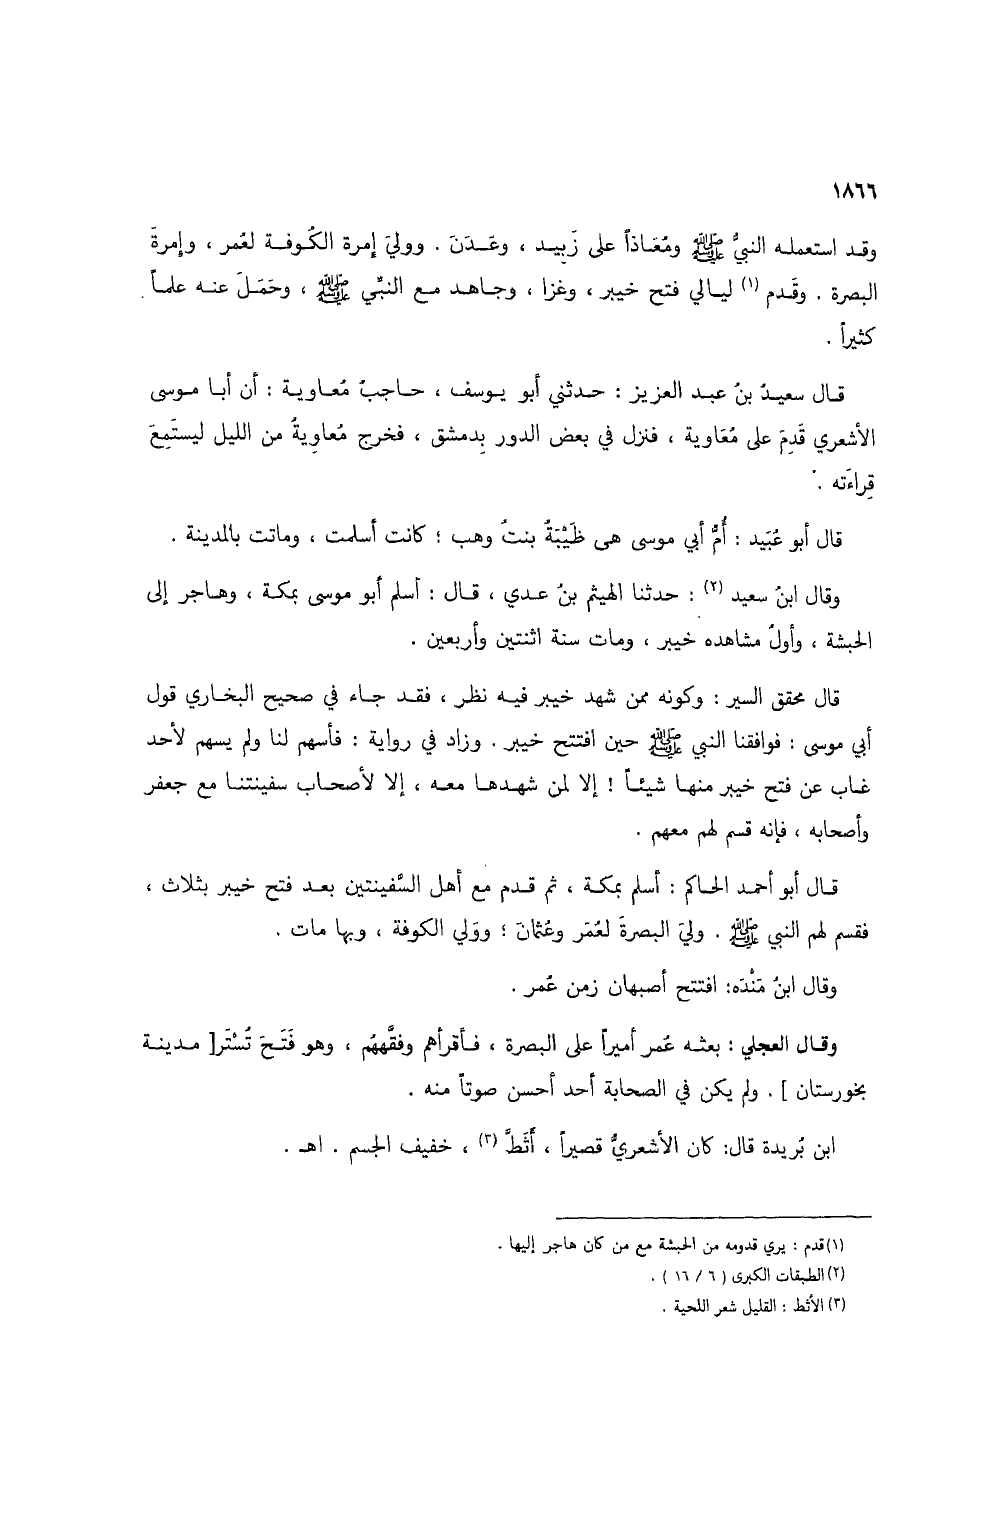 ١٨٦٦
وقد استعمله النبيُّ ﷺ ومُعَاذاً على زَبِيد ، وعَدَنَ . ووليَ إمرة الكُوفة لعُمر ، وإمرةَ
البصرة . وقَدم (١) ليالي فتح خيبر ، وغزا ، وجاهد مع النبيِّ ﷺ ، وحَمَلَ عنه علماً
كثيراً .
قال سعيدُ بنُ عبد العزيز : حدثني أبو يوسف ، حاجبُ مُعاوية : أن أبا موسى
الأشعري قَدِمَ على مُعَاوية ، فنزل في بعض الدور بِدمشق ، فخرج مُعاويةُ من الليل ليستَمِعَ
قِراءَته .
قال أبو عُبَيد : أُمُّ أبي موسى هى ظَيْبَةُ بنتُ وهب ؛ كانت أسلمت ، وماتت بالمدينة .
وقال ابنُ سعيد (٢) : حدثنا الهيثم بنُ عدي ، قال : أسلم أبو موسى بمكة ، وهاجر إلى
الحبشة ، وأولُ مشاهده خيبر ، ومات سنة اثنتين وأربعين .
قال محقق السير : وكونه ممن شهد خيبر فيه نظر ، فقد جاء في صحيح البخاري قول
أبي موسى : فوافقنا النبي ﷺ حين افتتح خيبر . وزاد في رواية : فأسهم لنا ولم يسهم لأحد
غاب عن فتح خيبر منها شيئاً ! إلا لمن شهدها معه ، إلا لأصحاب سفينتنا مع جعفر
وأصحابه ، فإنه قسم لهم معهم .
قال أبو أحمد الحاكم : أسلم بمكة ، ثم قدم مع أهل السَّفينتين بعد فتح خيبر بثلاث ،
فقسم لهم النبي ﷺ . وليَ البصرةَ لعُمَر وعُثمانَ ؛ ووَلي الكوفة ، وبها مات .
وقال ابنُ مَنْدَه: افتتح أصبهان زمن عُمر .
وقال العجلي : بعثه عُمر أميراً على البصرة ، فأقرأهم وفقَّههُم ، وهو فَتَحَ تُسْتَر[ مدينة
بخورستان ] . ولم يكن في الصحابة أحد أحسن صوتاً منه .
ابن بُريدة قال: كان الأشعريُّ قصيراً ، أَثَطَّ (٣) ، خفيف الجسم . اهـ .
(١) قدم : يري قدومه من الحبشة مع من كان هاجر إليها .
(٢) الطبقات الكبرى ( ٦ / ١٦ ) .
(٣) الأثط : القليل شعر اللحية .